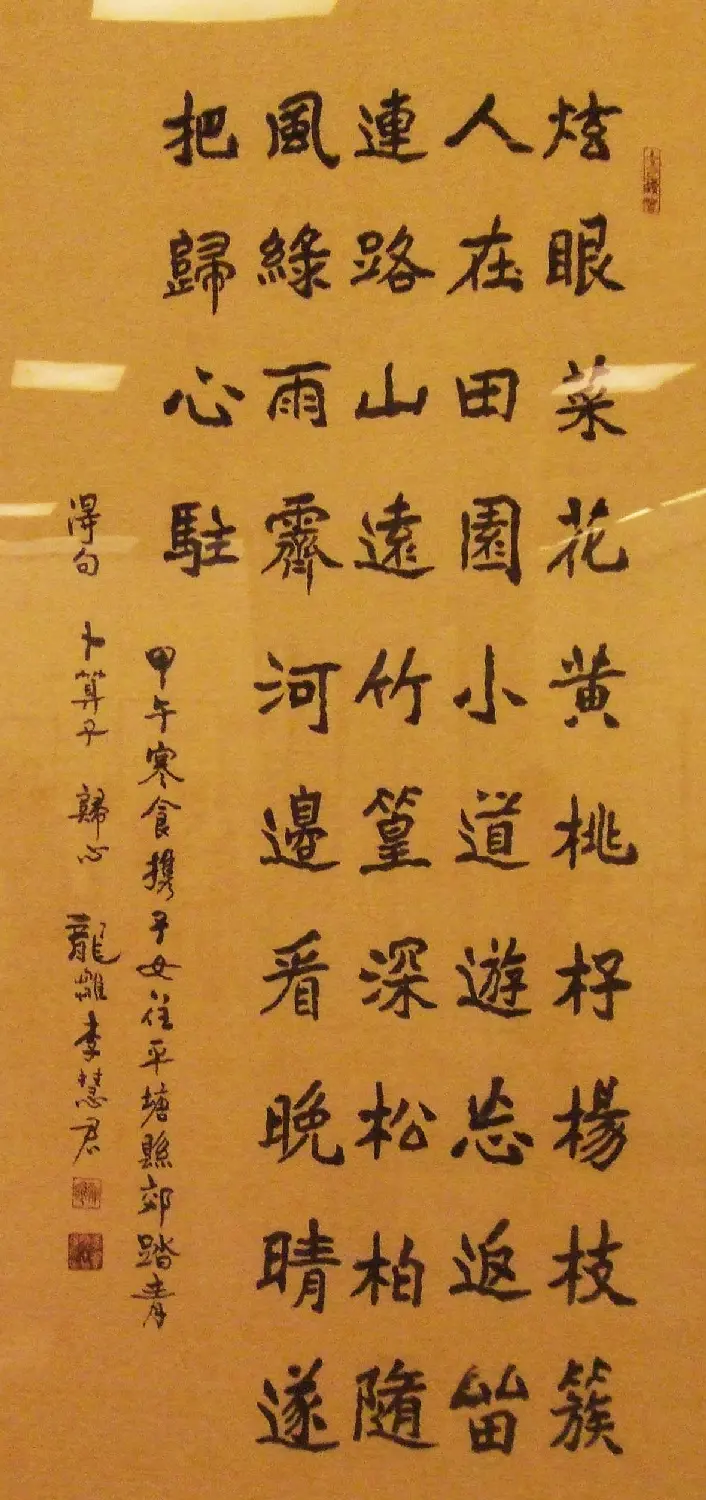 炫眼菜花黄桃杍楊枝簇
人在田園小道遊忘返留
連路山遠竹篁深松柏隨
風綠雨霽河邊看晚晴遂
把歸心駐
甲午寒食携子女往平塘縣郊踏青
得句 卜算子 歸心 李慧君